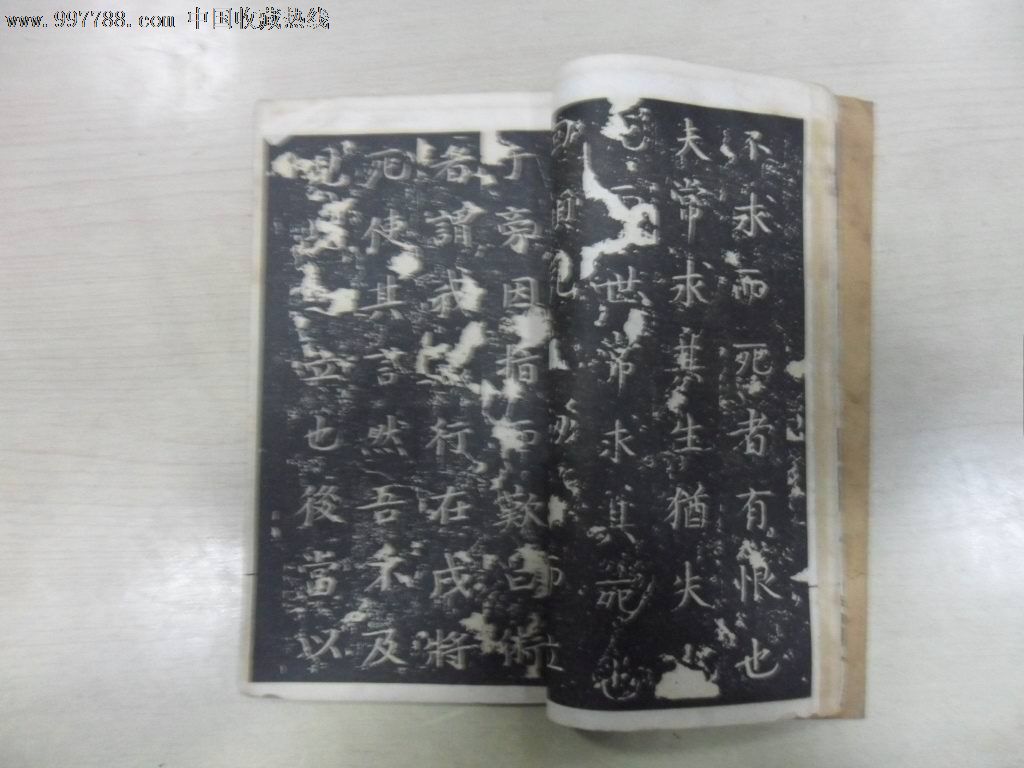 www.997788.com 中国收藏热线
不求而死者有恨也
夫常求其生猶失
世常求其死也
于旁因指而歎曰術
者謂我行在戌將
死使其言然吾不及
見立也後當以